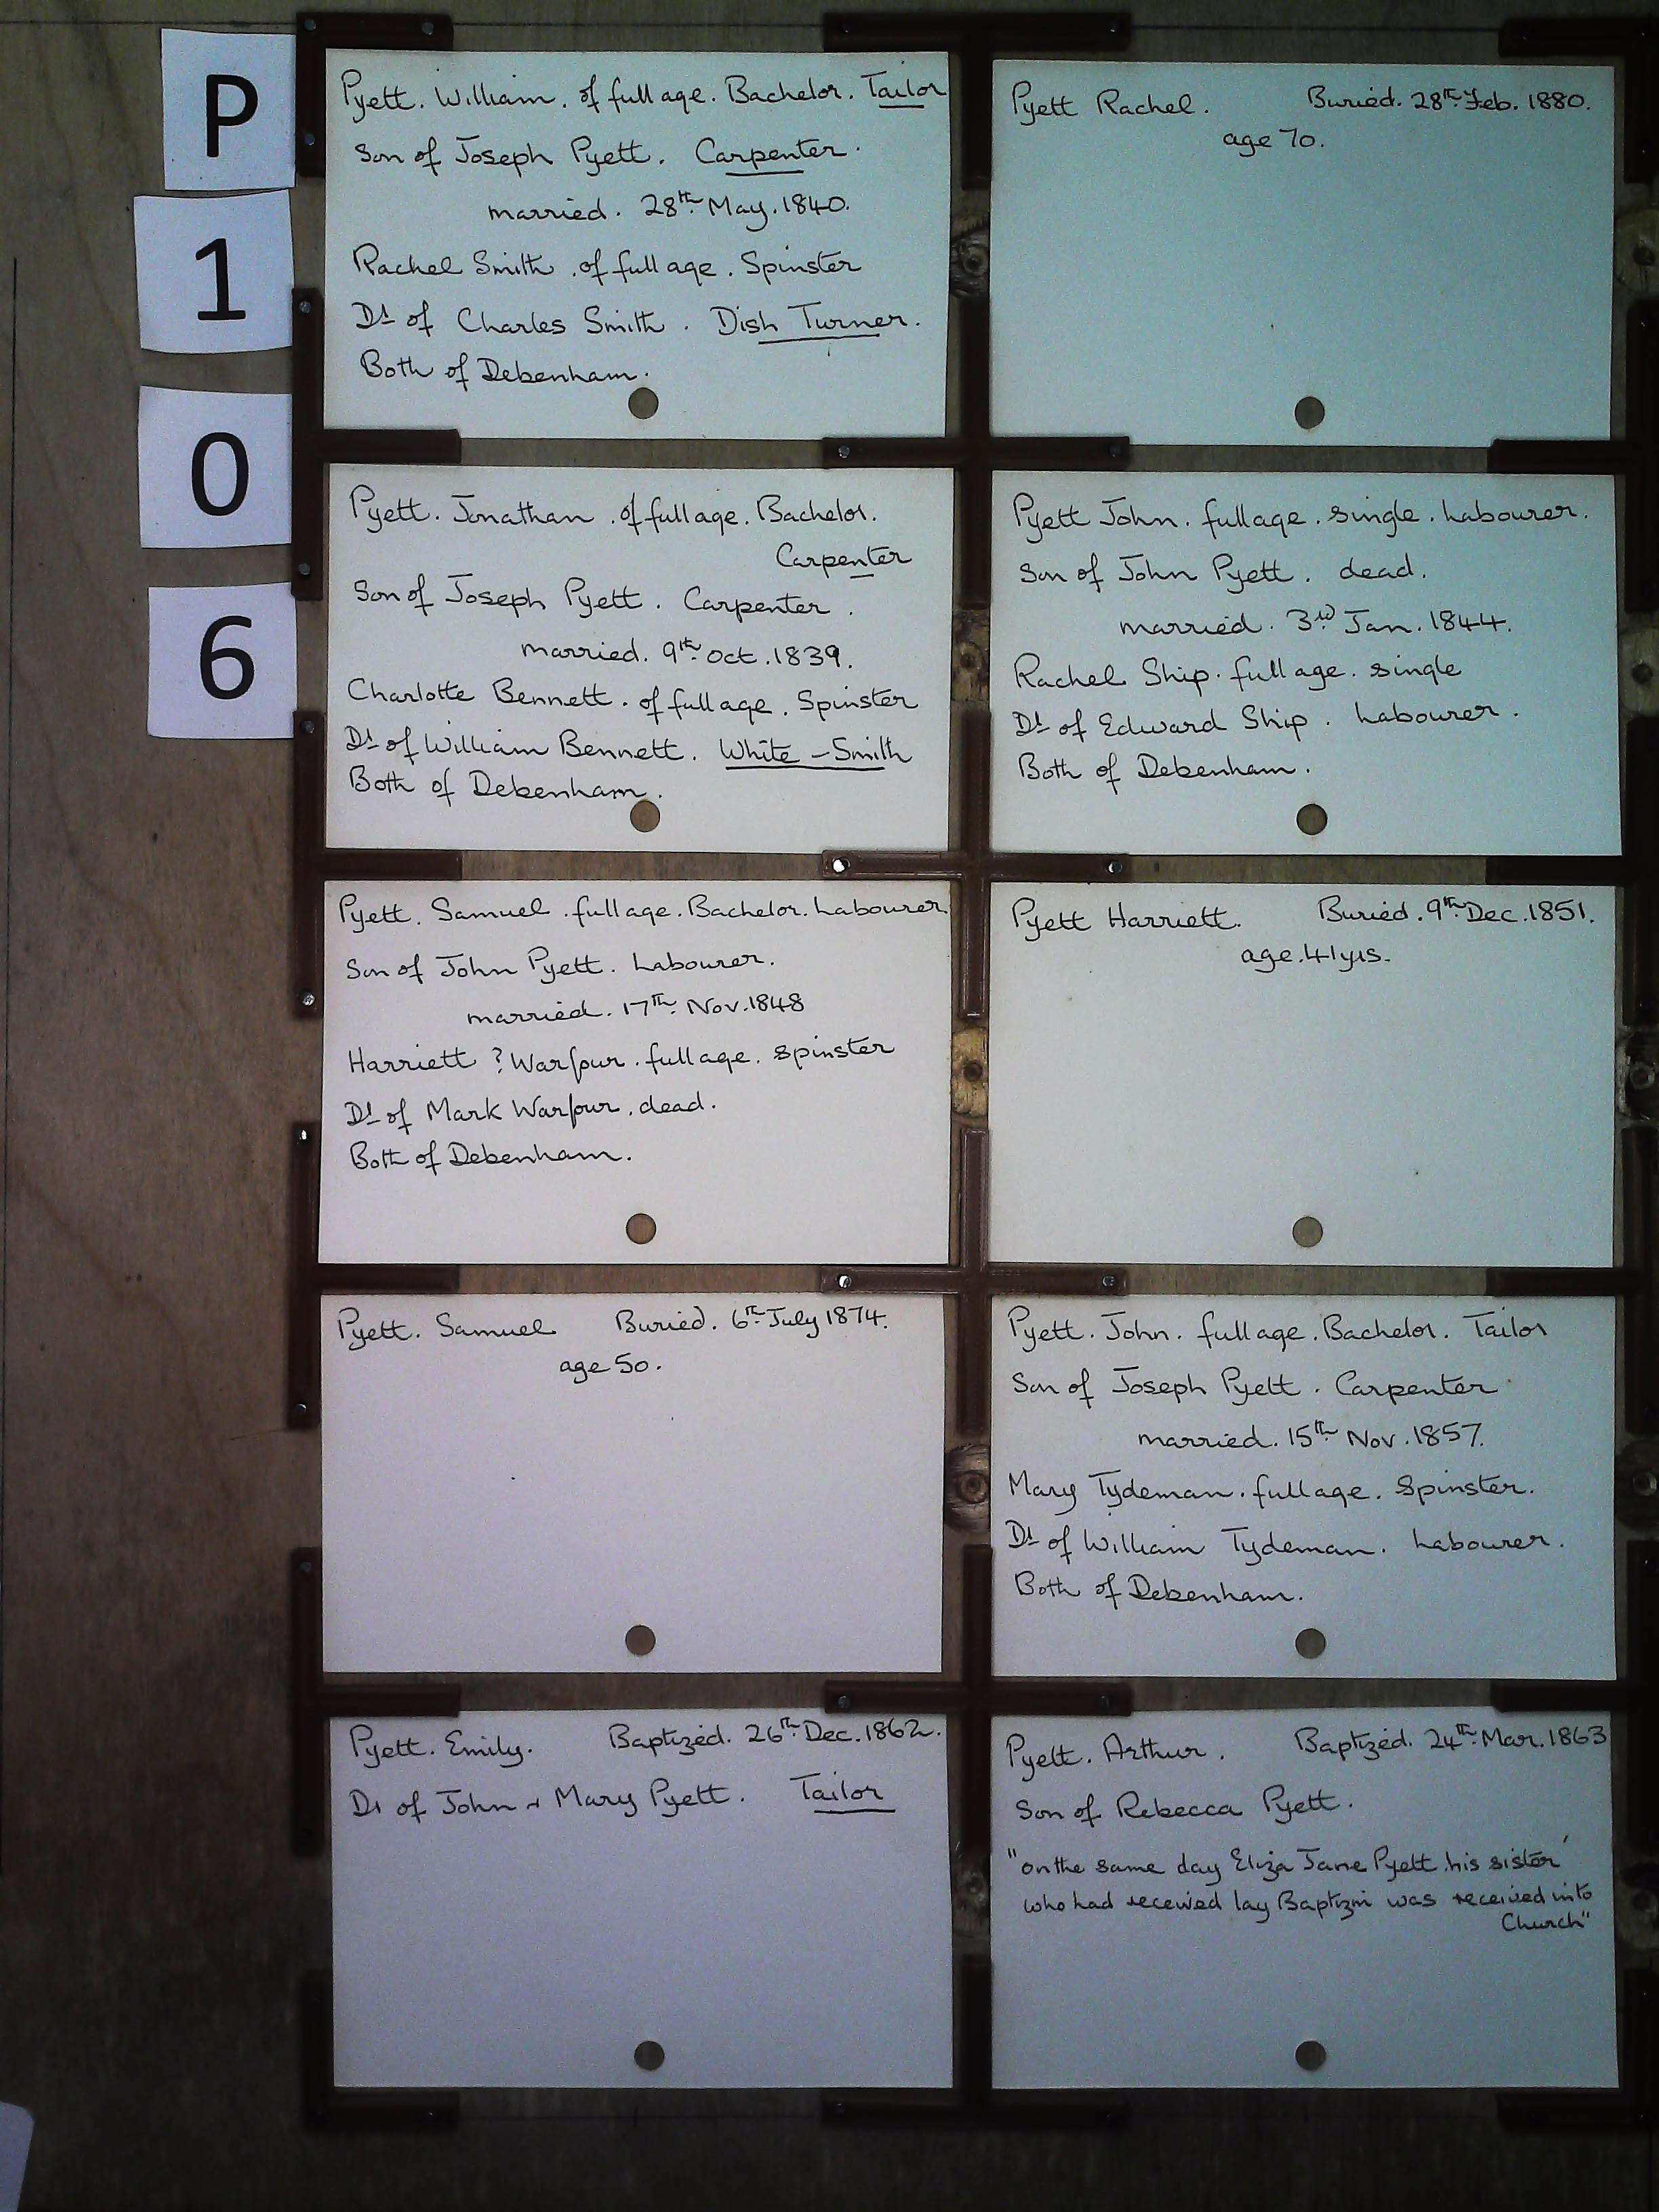 P
1
0
6
Pyett. William. of full age. Bachelor. Tailor
Son of Joseph Pyett. Carpenter.
married. 28th May. 1840.
Rachel Smith. of full age. Spinster
Dt of Charles Smith. Dish Turner.
Both of Debenham.
Pyett Rachel. Buried. 28th Feb. 1880.
age 70.
Pyett. Jonathan. of full age. Bachelor.
Carpenter
Son of Joseph Pyett. Carpenter.
married. 9th Oct. 1839.
Charlotte Bennett. of full age. Spinster
Dt of William Bennett. White-Smith
Both of Debenham.
Pyett John. full age. single. Labourer.
Son of John Pyett. dead.
married. 3rd Jan. 1844.
Rachel Ship. full age. single
Dt of Edward Ship. Labourer.
Both of Debenham.
Pyett. Samuel. full age. Bachelor. Labourer.
Son of John Pyett. Labourer.
married. 17th Nov. 1848
Harriett ? full age. spinster
Dt of Mark dead.
Both of Debenham.
Pyett Harriett. Buried. 9th Dec. 1851.
age. 41 yrs.
Pyett. Samuel Buried. 6th July 1874.
age 50.
Pyett. John. full age. Bachelor. Tailor
Son of Joseph Pyett. Carpenter
married. 15th Nov. 1857.
Mary Tydeman. full age. Spinster.
Dt of William Tydeman. Labourer.
Both of Debenham.
Pyett. Emily. Baptized. 26th Dec. 1862.
Dt of John + Mary Pyett. Tailor
Pyett. Arthur. Baptized. 24th Mar. 1863
Son of Rebecca Pyett.
"on the same day Eliza Jane Pyett his sister
who had received lay Baptizm was received into
Church"